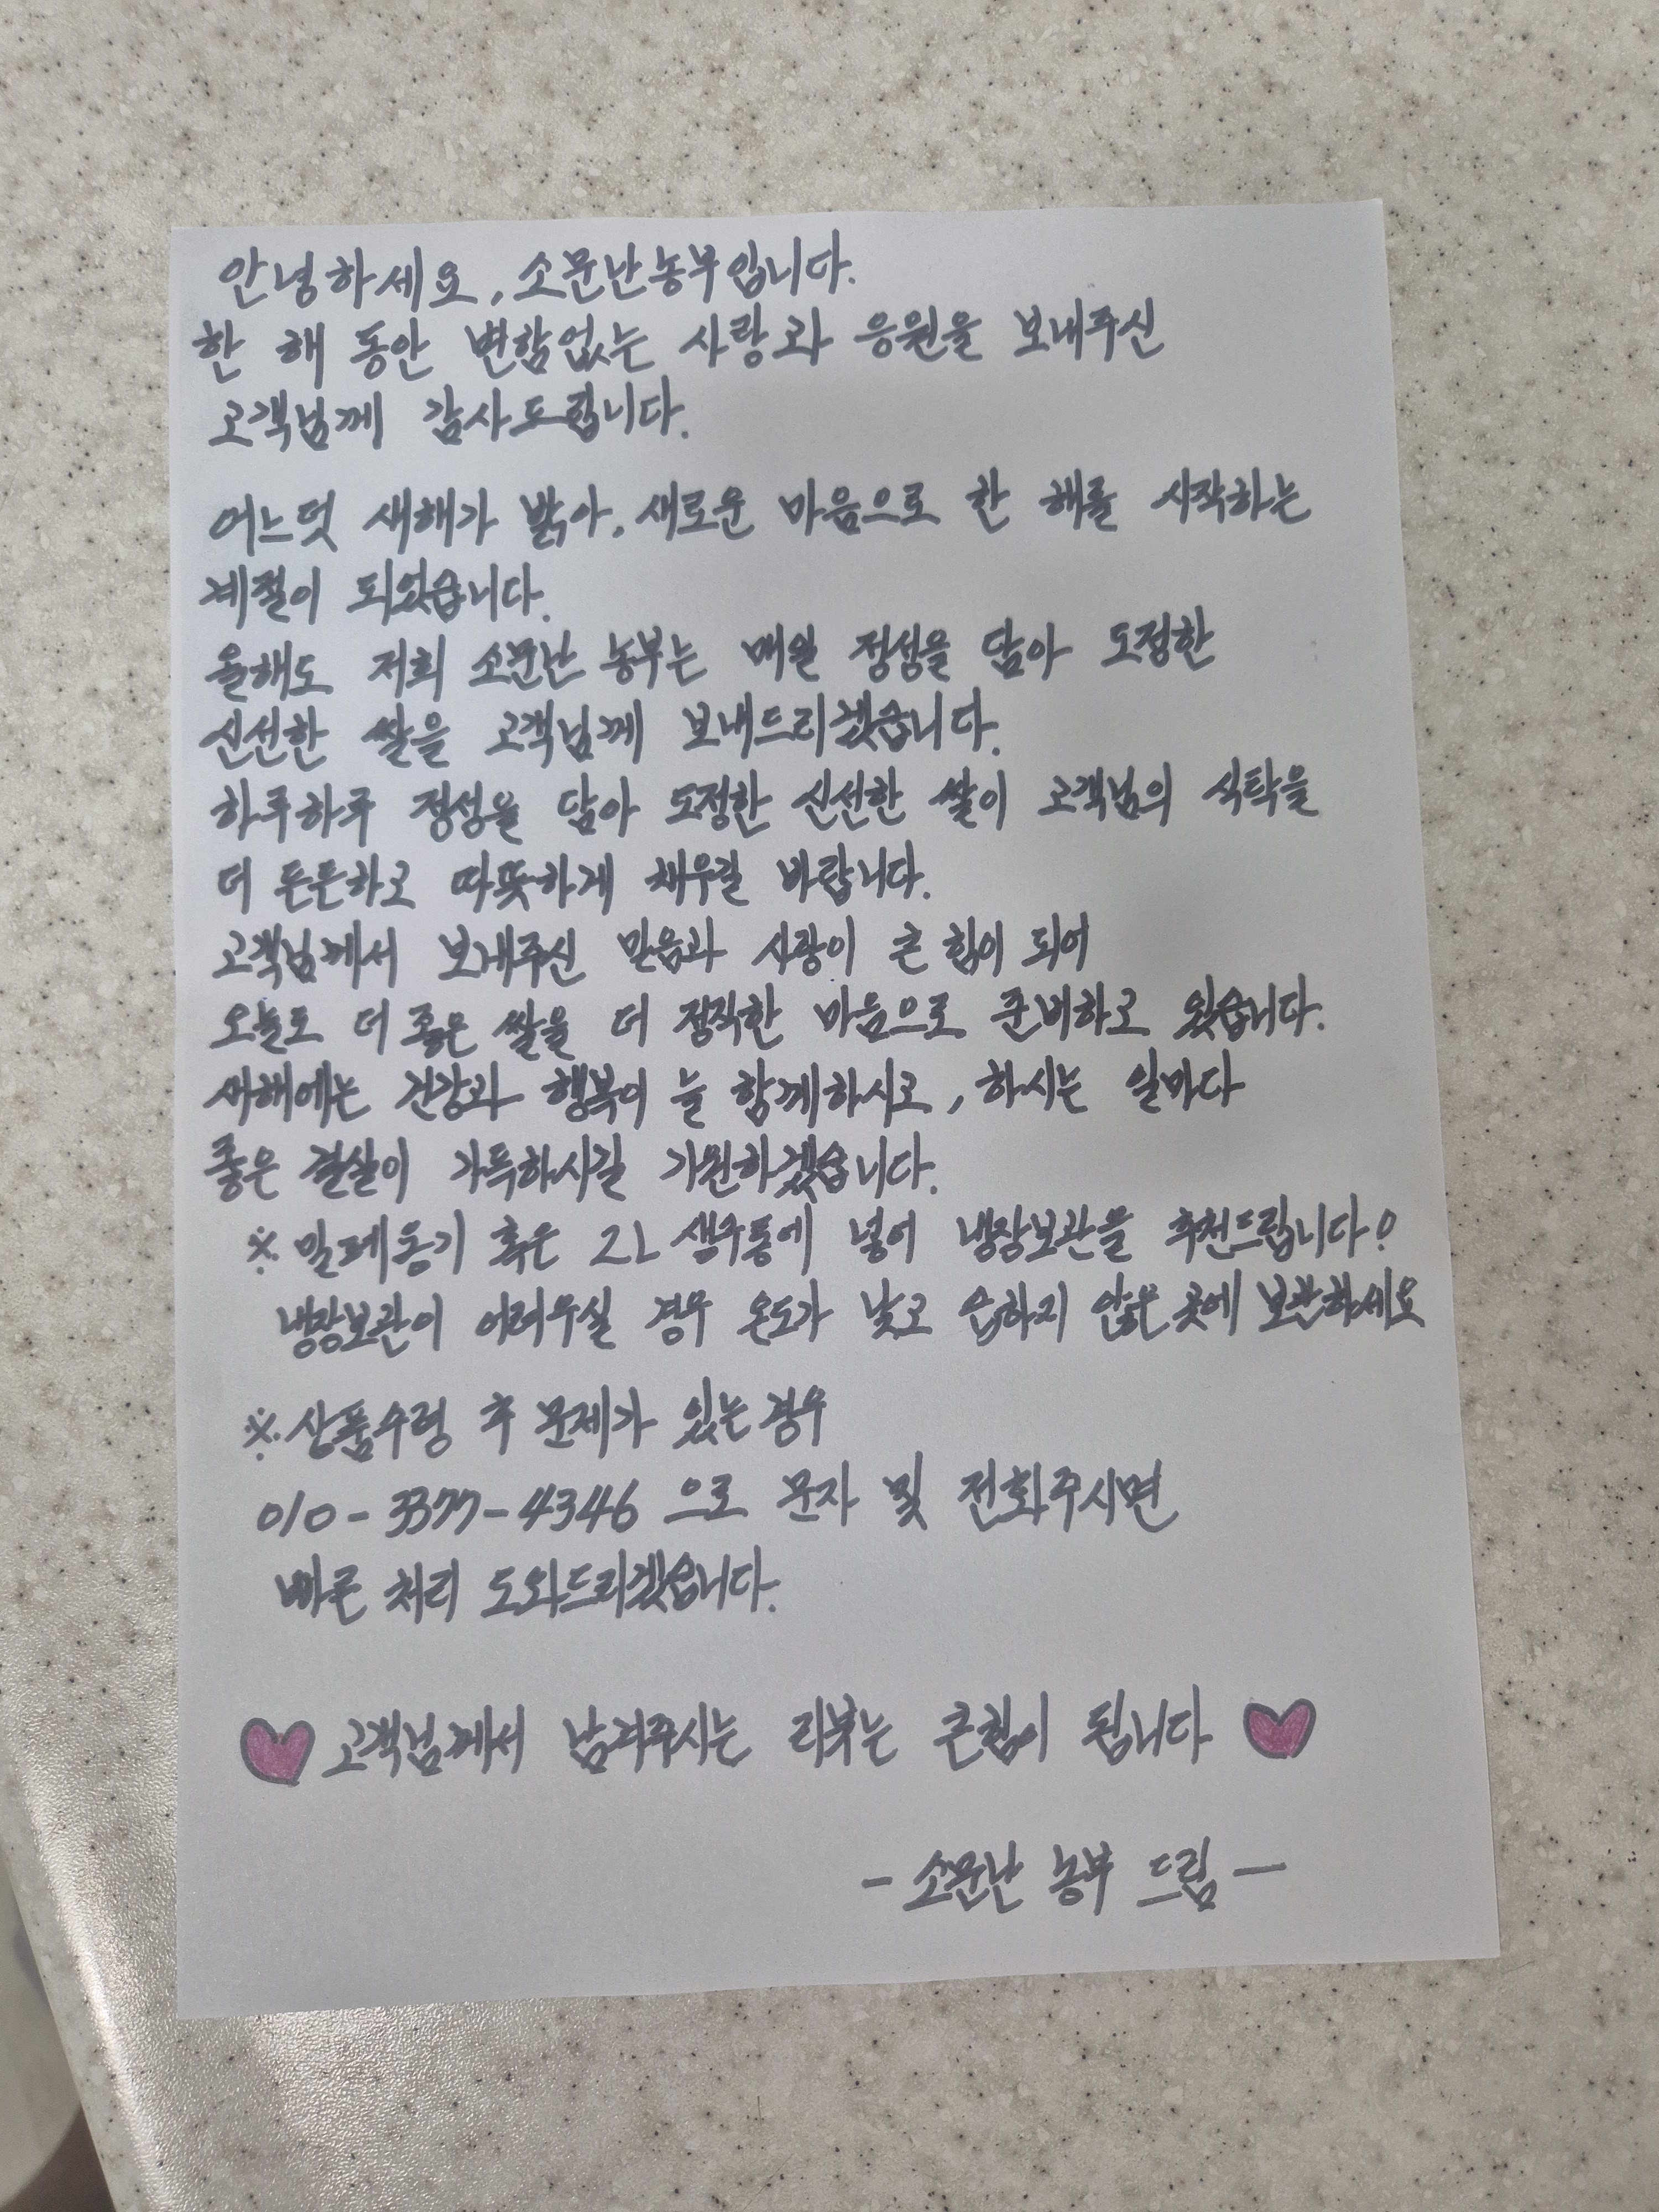 안녕하세요, 소문난농부입니다.
한 해 동안 변함없는 사랑과 응원을 보내주신
고객님께 감사드립니다.
어느덧 새해가 밝아, 새로운 마음으로 한 해를 시작하는
계절이 되었습니다.
올해도 저희 소문난 농부는 매일 정성을 담아 도정한
신선한 쌀을 고객님께 보내드리겠습니다.
하루하루 정성을 담아 도정한 신선한 쌀이 고객님의 식탁을
더 든든하고 따뜻하게 채우길 바랍니다.
고객님께서 보내주신 믿음과 사랑이 큰 힘이 되어
오늘도 더 좋은 쌀을 더 정직한 마음으로 준비하고 있습니다.
새해에는 건강과 행복이 늘 함께하시고, 하시는 일마다
좋은 결실이 가득하시길 기원하겠습니다.
※ 밀폐용기 혹은 2L 생수통에 넣어 냉장보관을 추천드립니다!
냉장보관이 어려우실 경우 온도가 낮고 습하지 않은 곳에 보관하세요
※ 상품수령 후 문제가 있는 경우
010-3377-4346 으로 문자 및 전화주시면
빠른 처리 도와드리겠습니다.
고객님께서 남겨주시는 리뷰는 큰힘이 됩니다
- 소문난 농부 드림 -